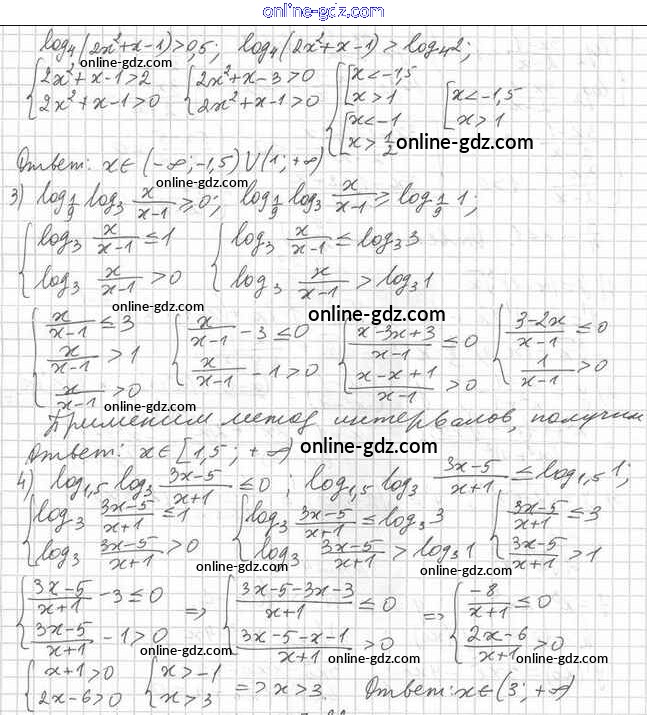 online-gdz.com
log₄(2x²+x-1)>0,5; log₄(2x²+x-1)>log₄2;
online-gdz.com
{2x²+x-1>2 {2x²+x-3>0 {[x<-1,5 [x<-1,5
{2x²+x-1>0 {2x²+x-1>0 {[x>1 [x>1
{[x<-1
{[x>1/2
online-gdz.com
Ответ: x∈(-∞;-1,5)∪(1;+∞)
online-gdz.com
3) log_{1/9} log₃ x/(x-1) ≥0; log_{1/9} log₃ x/(x-1) ≥ log_{1/9} 1;
{log₃ x/(x-1) ≤1 {log₃ x/(x-1) ≤ log₃3
{log₃ x/(x-1) >0 {log₃ x/(x-1) > log₃1
online-gdz.com online-gdz.com
{x/(x-1) ≤3 {x/(x-1) -3≤0 {(x-3x+3)/(x-1) ≤0 {(3-2x)/(x-1) ≤0
{x/(x-1) >1 {x/(x-1) -1>0 {(x-x+1)/(x-1) >0 {1/(x-1) >0
{x/(x-1) >0
online-gdz.com
Применим метод интервалов, получим
Ответ: x∈[1,5; +∞)
online-gdz.com
4) log₁,₅ log₃ (3x-5)/(x+1) ≤0, log₁,₅ log₃ (3x-5)/(x+1) ≤log₁,₅1;
{log₃ (3x-5)/(x+1) ≤1 {log₃ (3x-5)/(x+1) ≤log₃3 {(3x-5)/(x+1) ≤3
{log₃ (3x-5)/(x+1) >0 {log₃ (3x-5)/(x+1) >log₃1 {(3x-5)/(x+1) >1
online-gdz.com online-gdz.com
{(3x-5)/(x+1) -3≤0 => {(3x-5-3x-3)/(x+1) ≤0 => {-8/(x+1) ≤0
{(3x-5)/(x+1) -1>0 {(3x-5-x-1)/(x+1) >0 {(2x-6)/(x+1) >0
online-gdz.com online-gdz.com online-gdz.com
{x+1>0 {x>-1 => x>3. Ответ: x∈(3; +∞)
{2x-6>0 {x>3